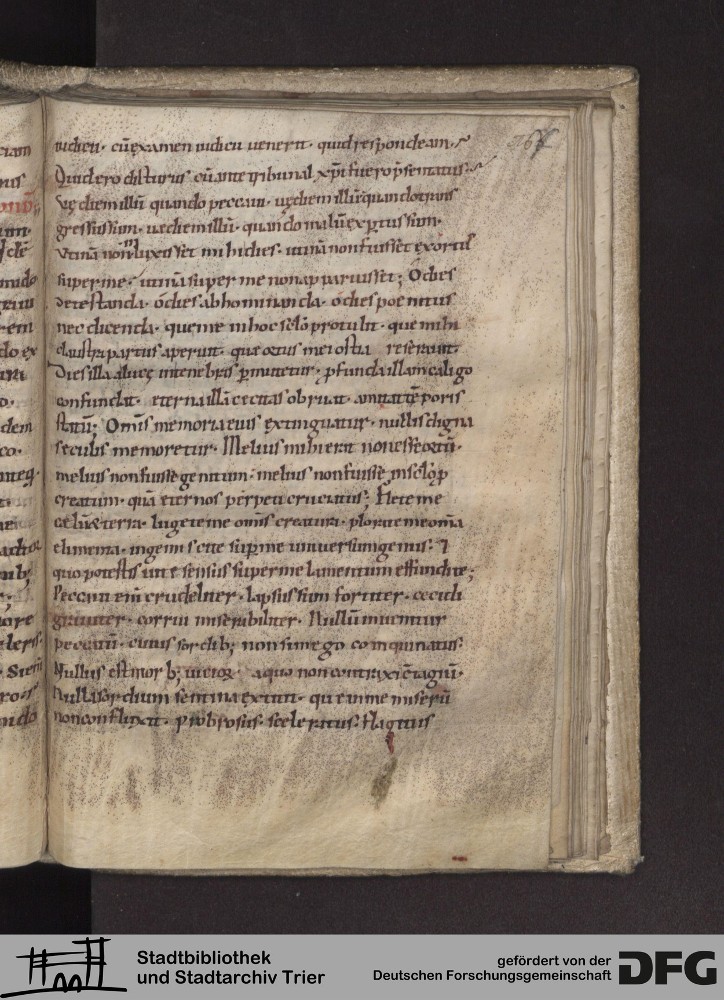 iudicii · cū examen iudicii uenerit · quid respondeam ·
Quid ero dicturus cū ante tribunal xp̄i fuero p̄sentatus ·
Vę diem illū quando peccaui · uę diem illū quando trans
gressus sum · uę diem illū · quando malū exꝑtus sum ·
Vtinā non illuxisset mihi dies · utinā non fuisset exortus
super me · utinā super me non apparuisset ; O dies
detestanda · o dies abhominanda · o dies poenitus
nec dicenda · que me in hoc sc̄lo protulit · que mihi
claustra partus aperuit · que ortus mei ostia reserauit ·
Dies illa a luce in tenebras ꝑmutetur · ꝓfunda illam caligo
confundat · eterna illā cecitas obruat · amittat tēporis
statū ; Omīs memoria eius extinguatur · nullis digna
seculis memoretur · Melius mihi erat non esse ortū ·
melius non fuisse genitum · melius non fuisse in sc̄lo ꝓ
creatum · quā eternos perpeti cruciatus ; Flete me
celū & terra · lugete me omīs creatura · plorate me om̄a
elimenta · ingemiscite suꝑ me uniuersum genus · &
quo potestis uite sensus super me lamentum effundite ;
Peccaui eni crudeliter · lapsus sum fortiter · cecidi
grauiter · corrui miserabiliter · Nullū inuenitur
peccatū · cuius sordib; non sim ego coinquinatus ·
Nullus est morb; uicioꝝ · a quo non contraxi c̄tagiū ·
Nulla sordium sentina extitit · que in me miserū
non confluxit · Probrosus · sceleratus · flagitiis
Stadtbibliothek
und Stadtarchiv Trier
gefördert von der
Deutschen Forschungsgemeinschaft
DFG